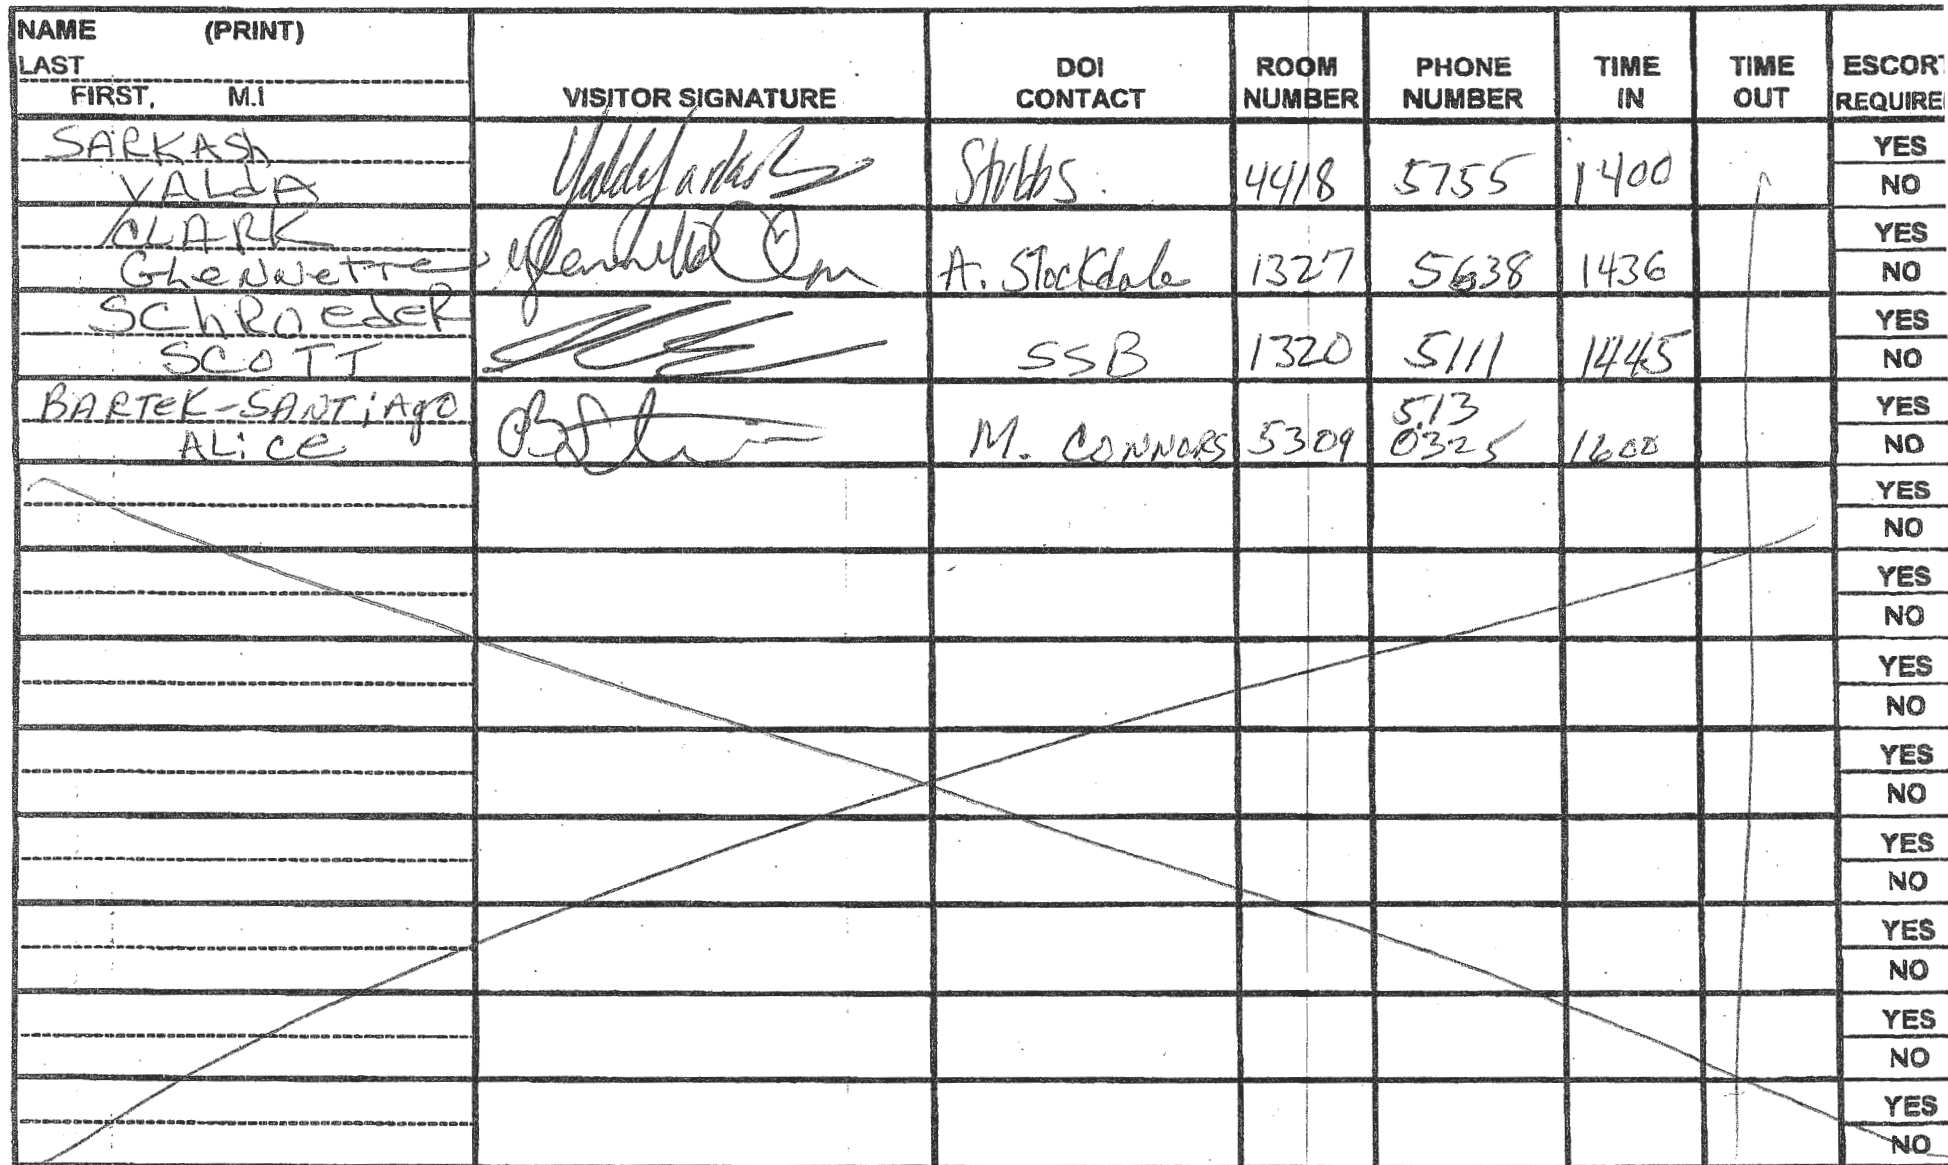 NAME (PRINT)
LAST
FIRST, M.I
VISITOR SIGNATURE
DOI CONTACT
ROOM NUMBER
PHONE NUMBER
TIME IN
TIME OUT
ESCORT REQUIRE
SARKASh
VALdA
Stubbs.
4418
5755
1400
YES
NO
CLARK
GLeNNeTTe
A. Stockdale
1327
5638
1436
YES
NO
SChRoedeR
SCOTT
SSB
1320
5111
1445
YES
NO
BARTeK-SANTiAgo
ALiCe
M. CONNORS
5309
513
0325
1600
YES
NO
YES
NO
YES
NO
YES
NO
YES
NO
YES
NO
YES
NO
YES
NO
YES
NO